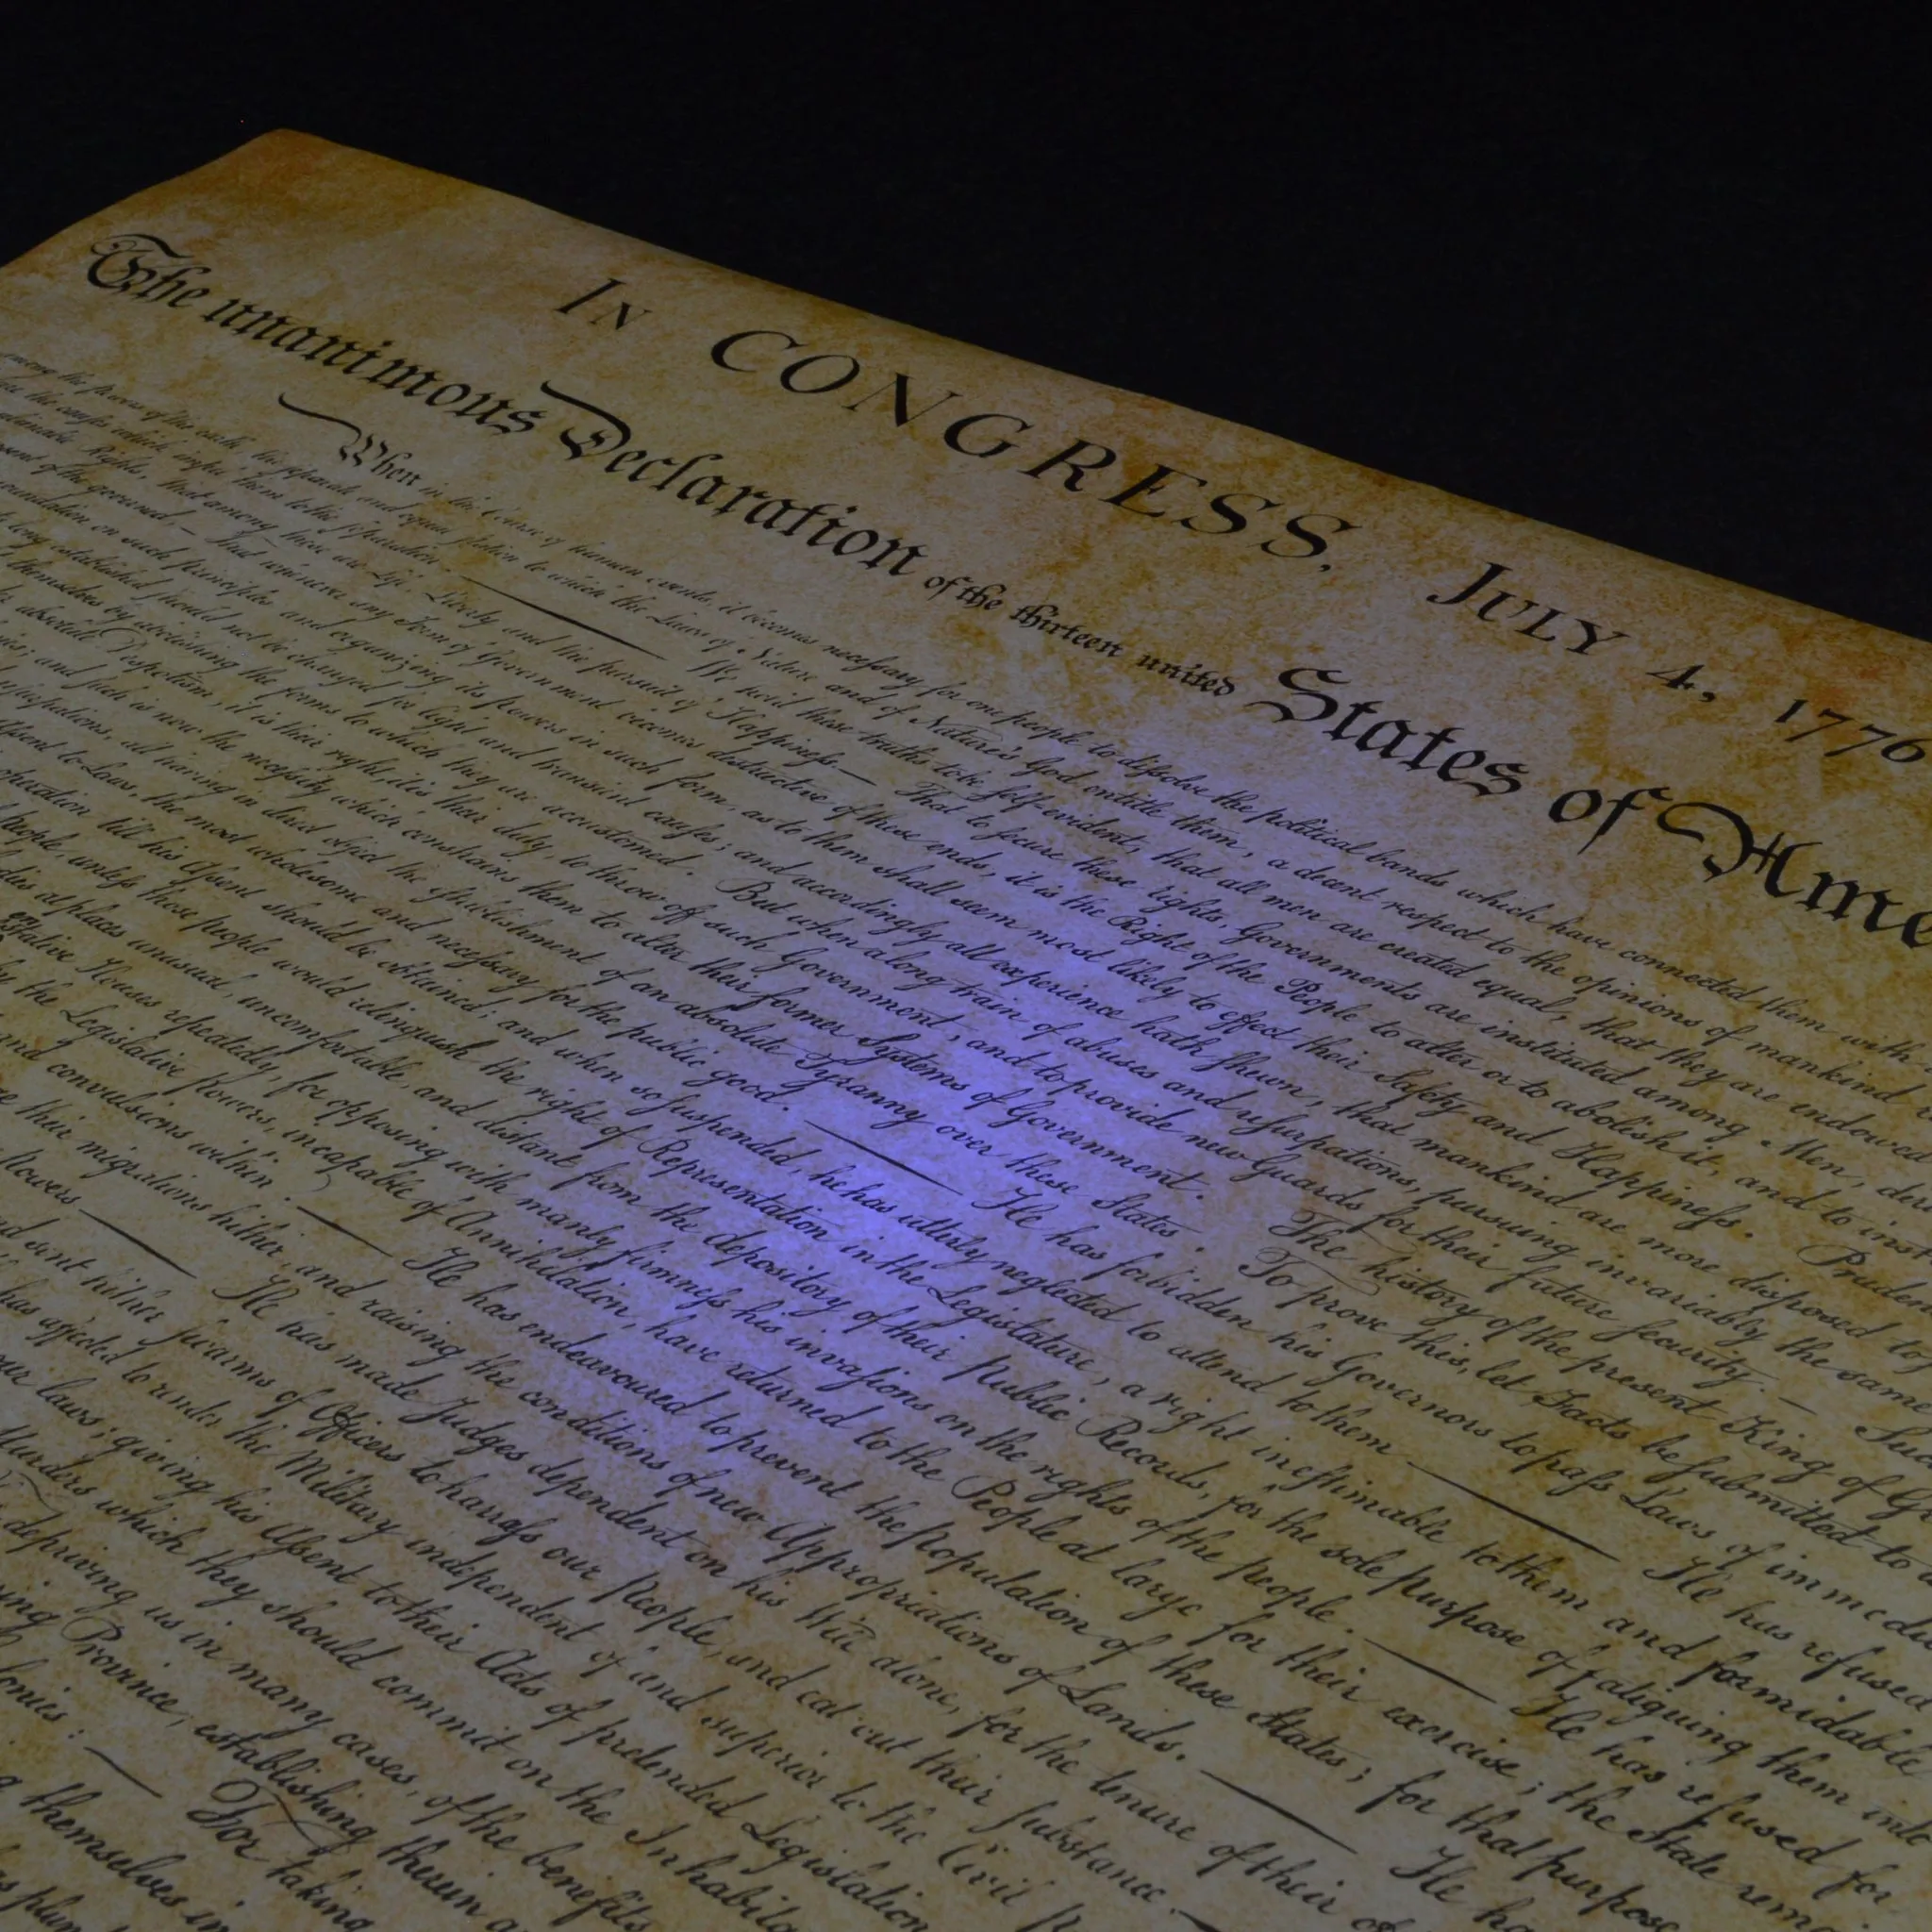 IN CONGRESS, JULY 4, 1776
The unanimous Declaration of the thirteen united States of Ame
When in the Course of human events, it becomes necessary for one people to dissolve the political bands which have connected them with
among the powers of the earth, the separate and equal station to which the Laws of Nature and of Nature's God entitle them, a decent respect to the opinions of mankind
the causes which impel them to the separation. —— We hold these truths to be self-evident, that all men are created equal, that they are endowed
Rights, that among these are Life, Liberty and the pursuit of Happiness.— That to secure these rights, Governments are instituted among Men, deri
of the governed,— That whenever any Form of Government becomes destructive of these ends, it is the Right of the People to alter or to abolish it, and to inst
foundation on such principles and organizing its powers in such form, as to them shall seem most likely to effect their Safety and Happiness. Pruden
long established should not be changed for light and transient causes; and accordingly all experience hath shewn, that mankind are more disposed to
themselves by abolishing the forms to which they are accustomed. But when a long train of abuses and usurpations, pursuing invariably the same
absolute Despotism, it is their right, it is their duty, to throw off such Government, and to provide new Guards for their future security.— Such
and such is now the necessity which constrains them to alter their former Systems of Government. The history of the present King of G
usurpations, all having in direct object the establishment of an absolute Tyranny over these States. To prove this, let Facts be submitted to a
Assent to Laws, the most wholesome and necessary for the public good. —— He has forbidden his Governors to pass Laws of immedi
operation till his Assent should be obtained; and when so suspended, he has utterly neglected to attend to them —— He has refused
People, unless those people would relinquish the right of Representation in the Legislature, a right inestimable to them and formidable
at places unusual, uncomfortable, and distant from the depository of their Public Records, for the sole purpose of fatiguing them into
Houses repeatedly, for opposing with manly firmness his invasions on the rights of the people. —— He has refused for
the Legislative Powers, incapable of Annihilation, have returned to the People at large for their exercise; the State rema
and convulsions within. —— He has endeavoured to prevent the population of these States; for that purpose
their migrations hither, and raising the conditions of new Appropriations of Lands. —— He ha
Powers —— He has made Judges dependent on his Will alone, for the tenure of their of
sent hither swarms of Officers to harrass our People, and eat out their substance.
has affected to render the Military independent of and superior to the Civil P
our laws; giving his Assent to their Acts of pretended Legislation
Murders which they should commit on the Inhabita
depriving us in many cases, of the benefits
Province, establishing therein a
For taking
themselves in